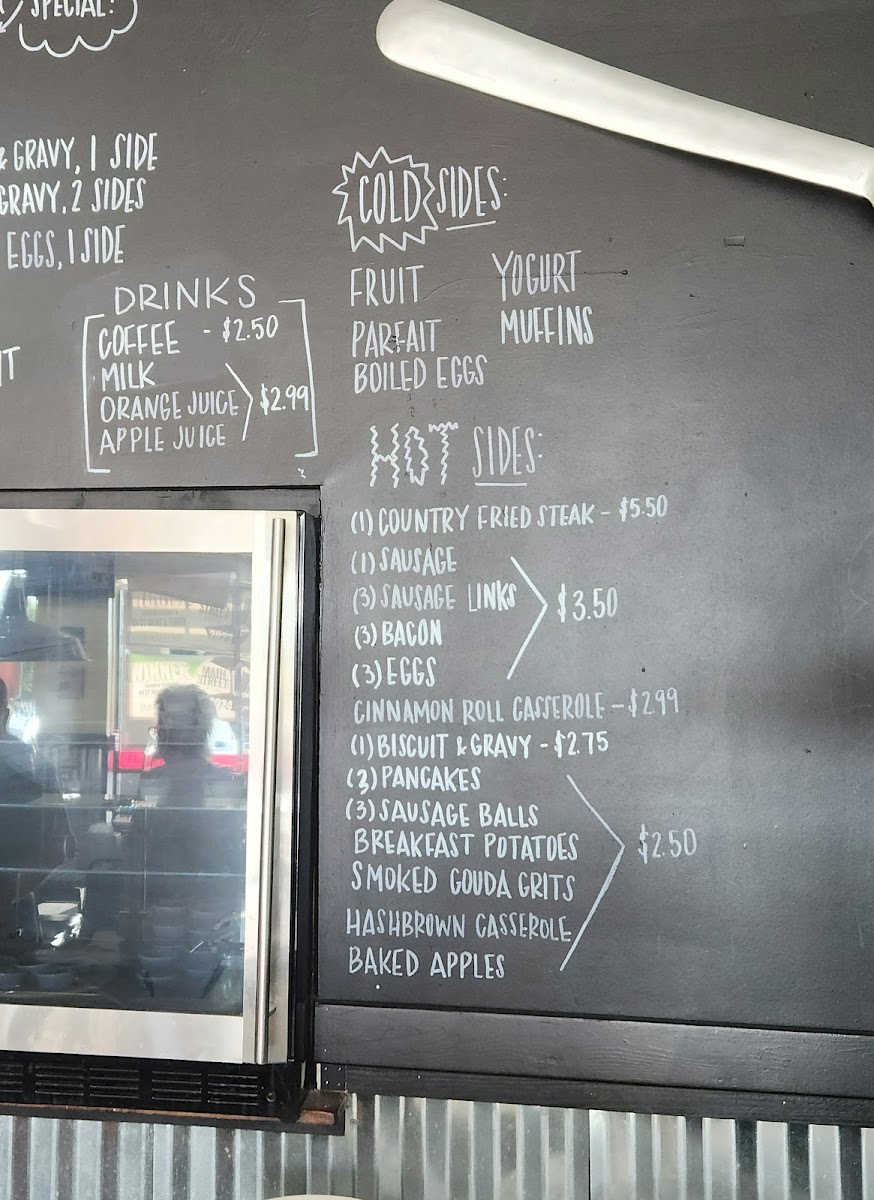 SPECIAL:
& GRAVY, 1 SIDE
GRAVY, 2 SIDES
EGGS, 1 SIDE
DRINKS
COFFEE - $2.50
MILK
ORANGE JUICE $2.99
APPLE JUICE
COLD SIDES:
FRUIT YOGURT
PARFAIT MUFFINS
BOILED EGGS
HOT SIDES:
(1) COUNTRY FRIED STEAK - $5.50
(1) SAUSAGE
(3) SAUSAGE LINKS $3.50
(3) BACON
(3) EGGS
CINNAMON ROLL CASSEROLE - $2.99
(1) BISCUIT & GRAVY - $2.75
(2) PANCAKES
(3) SAUSAGE BALLS
BREAKFAST POTATOES $2.50
SMOKED GOUDA GRITS
HASHBROWN CASSEROLE
BAKED APPLES